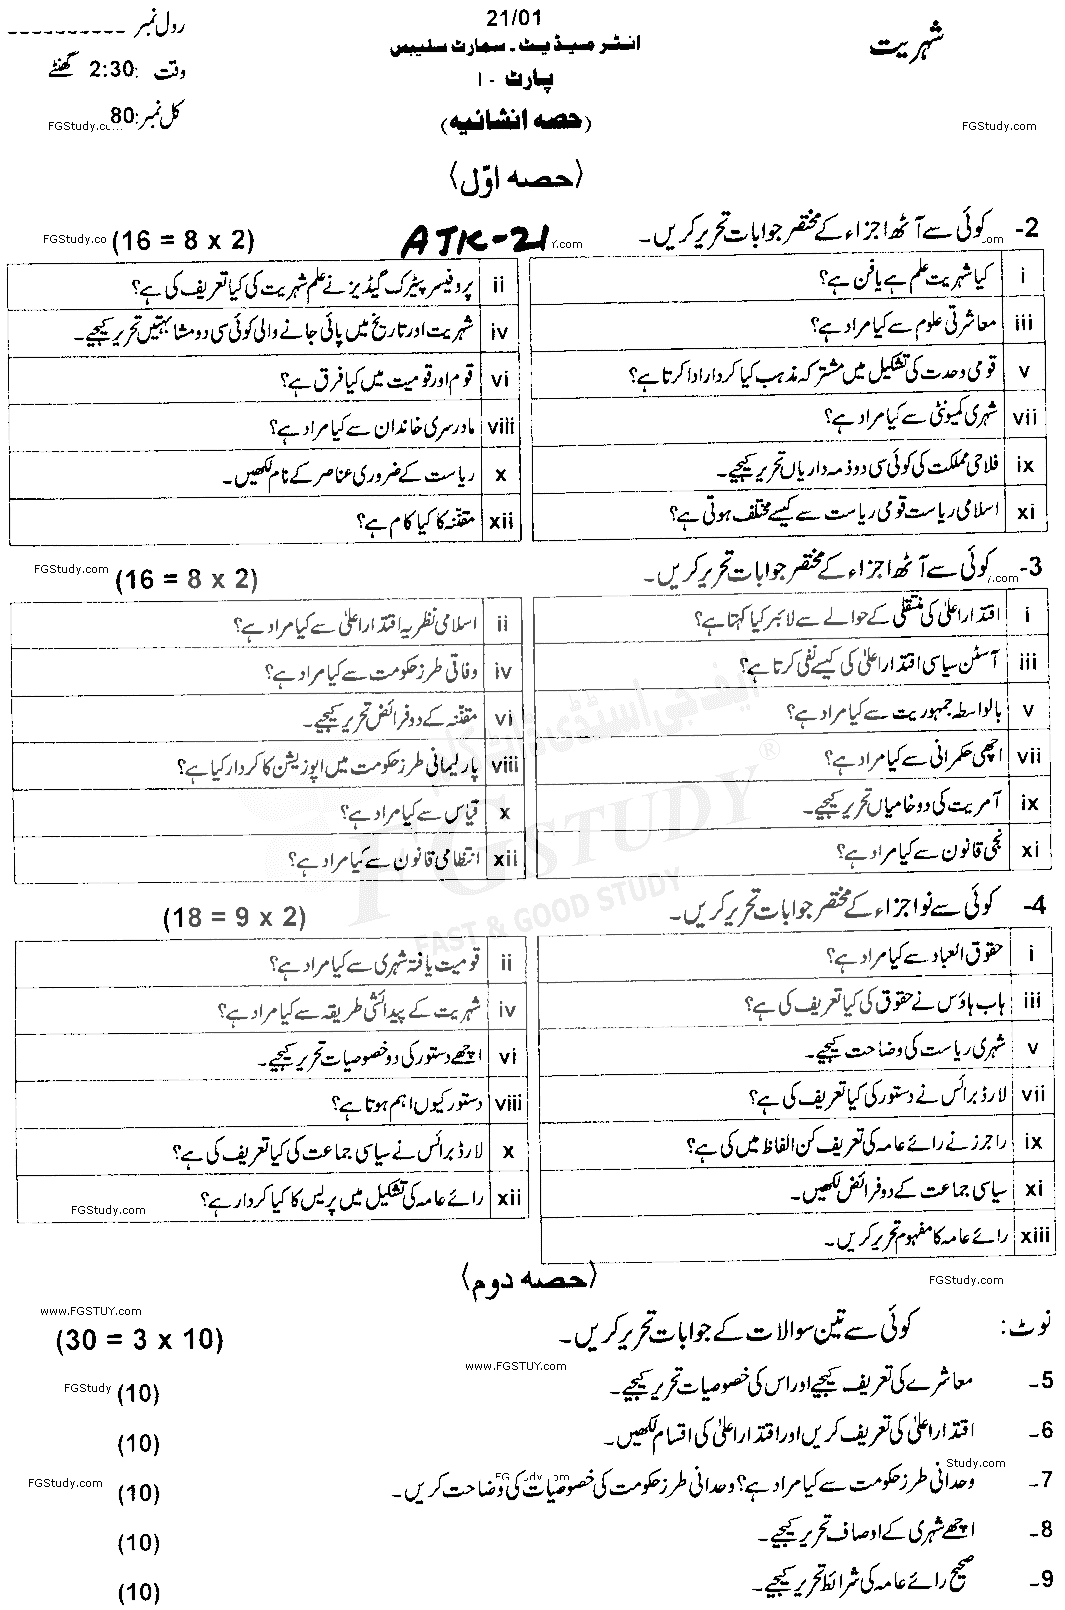 شہریت
21/01
انٹرمیڈیٹ۔ سمارٹ سلیبس
پارٹ - I
(حصہ انشائیہ)
رول نمبر ----------
وقت: 2:30 گھنٹے
کل نمبر: 80
FGStudy.com
FGStudy.c
(حصہ اوّل)
2- کوئی سے آٹھ اجزاء کے مختصر جوابات تحریر کریں۔ ATK-21 (16 = 8 x 2)
FGStudy.co
i کیا شہریت علم ہے یا فن ہے؟
ii پروفیسر پیٹرک گیڈیز نے علم شہریت کی کیا تعریف کی ہے؟
iii معاشرتی علوم سے کیا مراد ہے؟
iv شہریت اور تاریخ میں پائی جانے والی کوئی سی دو مشابہتیں تحریر کیجیے۔
v قومی وحدت کی تشکیل میں مشترکہ مذہب کیا کردار ادا کرتا ہے؟
vi قوم اور قومیت میں کیا فرق ہے؟
vii شہری کمیونٹی سے کیا مراد ہے؟
viii مادرسری خاندان سے کیا مراد ہے؟
ix فلاحی مملکت کی کوئی سی دو ذمہ داریاں تحریر کیجیے۔
x ریاست کے ضروری عناصر کے نام لکھیں۔
xi اسلامی ریاست قومی ریاست سے کیسے مختلف ہوتی ہے؟
xii مقننہ کا کیا کام ہے؟
3- کوئی سے آٹھ اجزاء کے مختصر جوابات تحریر کریں۔ (16 = 8 x 2)
FGStudy.com
i اقتدار اعلیٰ کی منتقلی کے حوالے سے لائبر کیا کہتا ہے؟
ii اسلامی نظریہ اقتدار اعلیٰ سے کیا مراد ہے؟
iii آسٹن سیاسی اقتدار اعلیٰ کی کیسے نفی کرتا ہے؟
iv وفاقی طرز حکومت سے کیا مراد ہے؟
v بالواسطہ جمہوریت سے کیا مراد ہے؟
vi مقننہ کے دو فرائض تحریر کیجیے۔
vii اچھی حکمرانی سے کیا مراد ہے؟
viii پارلیمانی طرز حکومت میں اپوزیشن کا کردار کیا ہے؟
ix آمریت کی دو خامیاں تحریر کیجیے۔
x قیاس سے کیا مراد ہے؟
xi نجی قانون سے کیا مراد ہے؟
xii انتظامی قانون سے کیا مراد ہے؟
FGSTUDY
FAST & GOOD STUDY
4- کوئی سے نو اجزاء کے مختصر جوابات تحریر کریں۔ (18 = 9 x 2)
i حقوق العباد سے کیا مراد ہے؟
ii قومیت یافتہ شہری سے کیا مراد ہے؟
iii ہاب ہاؤس نے حقوق کی کیا تعریف کی ہے؟
iv شہریت کے پیدائشی طریقہ سے کیا مراد ہے؟
v شہری ریاست کی وضاحت کیجیے۔
vi اچھے دستور کی دو خصوصیات تحریر کیجیے۔
vii لارڈ برائس نے دستور کی کیا تعریف کی ہے؟
viii دستور کیوں اہم ہوتا ہے؟
ix راجرز نے رائے عامہ کی تعریف کن الفاظ میں کی ہے؟
x لارڈ برائس نے سیاسی جماعت کی کیا تعریف کی ہے؟
xi سیاسی جماعت کے دو فرائض لکھیں۔
xii رائے عامہ کی تشکیل میں پریس کا کیا کردار ہے؟
xiii رائے عامہ کا مفہوم تحریر کریں۔
FGStudy.com
FGStudy.com
(حصہ دوم)
www.FGSTUY.com
نوٹ: کوئی سے تین سوالات کے جوابات تحریر کریں۔ (30 = 3 x 10)
www.FGSTUY.com
5- معاشرے کی تعریف کیجیے اور اس کی خصوصیات تحریر کیجیے۔ (10)
FGStudy
6- اقتدار اعلیٰ کی تعریف کریں اور اقتدار اعلیٰ کی اقسام لکھیں۔ (10)
Study.com
7- وحدانی طرز حکومت سے کیا مراد ہے؟ وحدانی طرز حکومت کی خصوصیات کی وضاحت کریں۔ (10)
FGStudy.com
8- اچھے شہری کے اوصاف تحریر کیجیے۔ (10)
9- صحیح رائے عامہ کی شرائط تحریر کیجیے۔ (10)